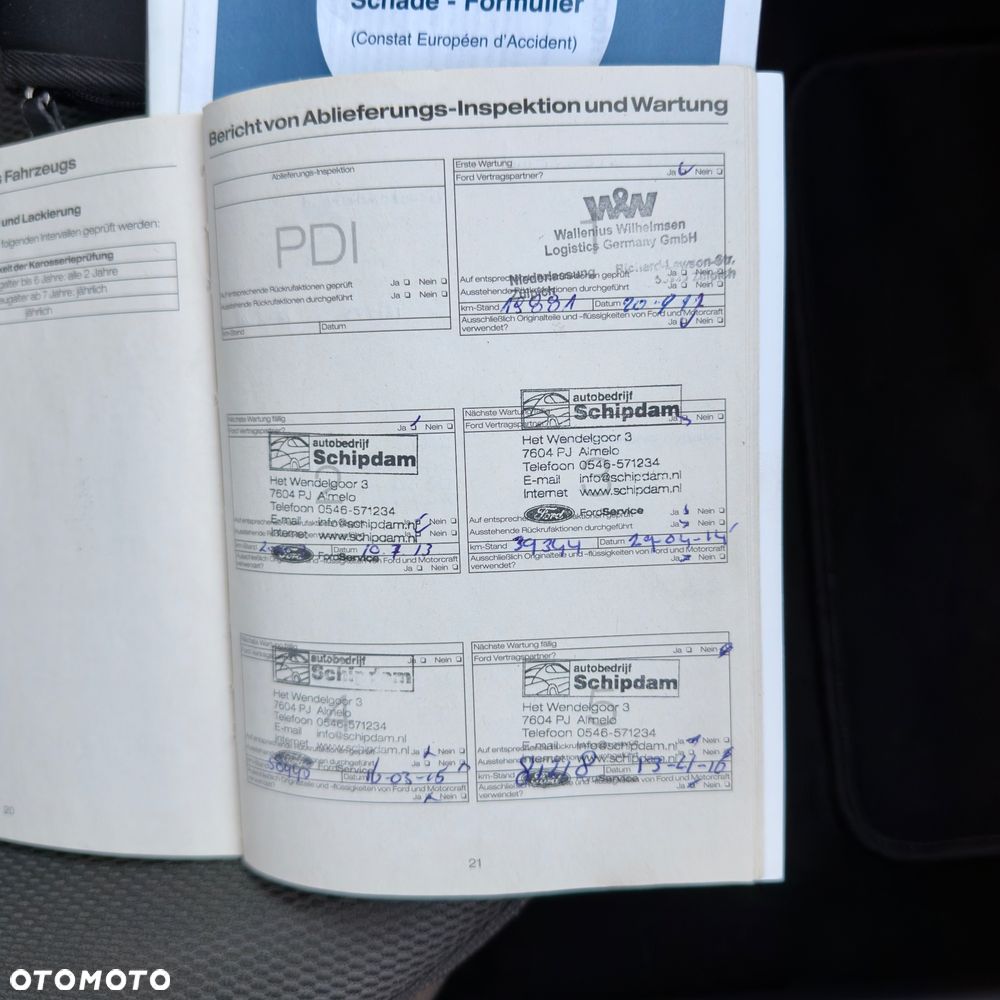 Schade - Formulier
(Constat Européen d'Accident)
Fahrzeugs
und Lackierung
folgenden Intervallen geprüft werden:
keit der Karosserieprüfung
alle 2 Jahre
ab 7 Jahre: jährlich
jährlich
20
Bericht von Ablieferungs-Inspektion und Wartung
Ablieferungs-Inspektion
PDI
Auf entsprechende Rückrufaktionen geprüft Ja Nein
Ausstehende Rückrufaktionen durchgeführt Ja Nein
km-Stand Datum
Erste Wartung
Ford Vertragspartner? Ja Nein
W&W
Wallenius Wilhelmsen
Logistics Germany GmbH
Niederlassung Richard-Lawson-Str.
Auf entsprechende Rückrufaktionen geprüft Ja Nein
Ausstehende Rückrufaktionen durchgeführt Ja Nein
km-Stand Datum
Ausschließlich Originalteile und -flüssigkeiten von Ford und Motorcraft
verwendet? Ja Nein
Nächste Wartung fällig
Ford Vertragspartner? Ja Nein
autobedrijf
Schipdam
Het Wendelgoor 3
7604 PJ Almelo
Telefoon 0546-571234
E-mail info@schipdam.nl
Internet www.schipdam.nl
Ford FordService
Datum 10.7.13
-flüssigkeiten von Ford und Motorcraft
verwendet? Ja Nein
Nächste Wartung fällig
Ford Vertragspartner? Ja Nein
autobedrijf
Schipdam
Het Wendelgoor 3
7604 PJ Almelo
Telefoon 0546-571234
E-mail info@schipdam.nl
Internet www.schipdam.nl
Ford FordService
Auf entsprechende Rückrufaktionen geprüft Ja Nein
Ausstehende Rückrufaktionen durchgeführt Ja Nein
km-Stand 39344 Datum 29-04-14
Ausschließlich Originalteile und -flüssigkeiten von Ford und Motorcraft
verwendet? Ja Nein
Nächste Wartung fällig
Ja Nein
autobedrijf
Schipdam
Het Wendelgoor 3
7604 PJ Almelo
Telefoon 0546-571234
E-mail info@schipdam.nl
Internet www.schipdam.nl
FordService
Datum 16-03-15
Ausschließlich Originalteile und -flüssigkeiten von Ford und Motorcraft
verwendet? Ja Nein
Nächste Wartung fällig
Ford Vertragspartner? Ja Nein
autobedrijf
Schipdam
Het Wendelgoor 3
7604 PJ Almelo
Telefoon 0546-571234
E-mail info@schipdam.nl
Internet www.schipdam.nl
km-Stand Datum
Ausschließlich Originalteile und -flüssigkeiten von Ford und Motorcraft
verwendet? Ja Nein
21
OTOMOTO